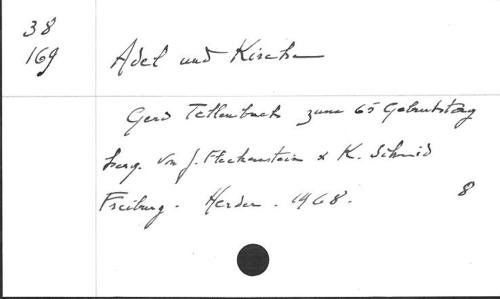 38
169
Adel und Kirche
Gerd Tellenbach zum 65 Geburtstag
hrsg. von J. Fleckenstein & K. Schmid
Freiburg. Herder. 1968.
8